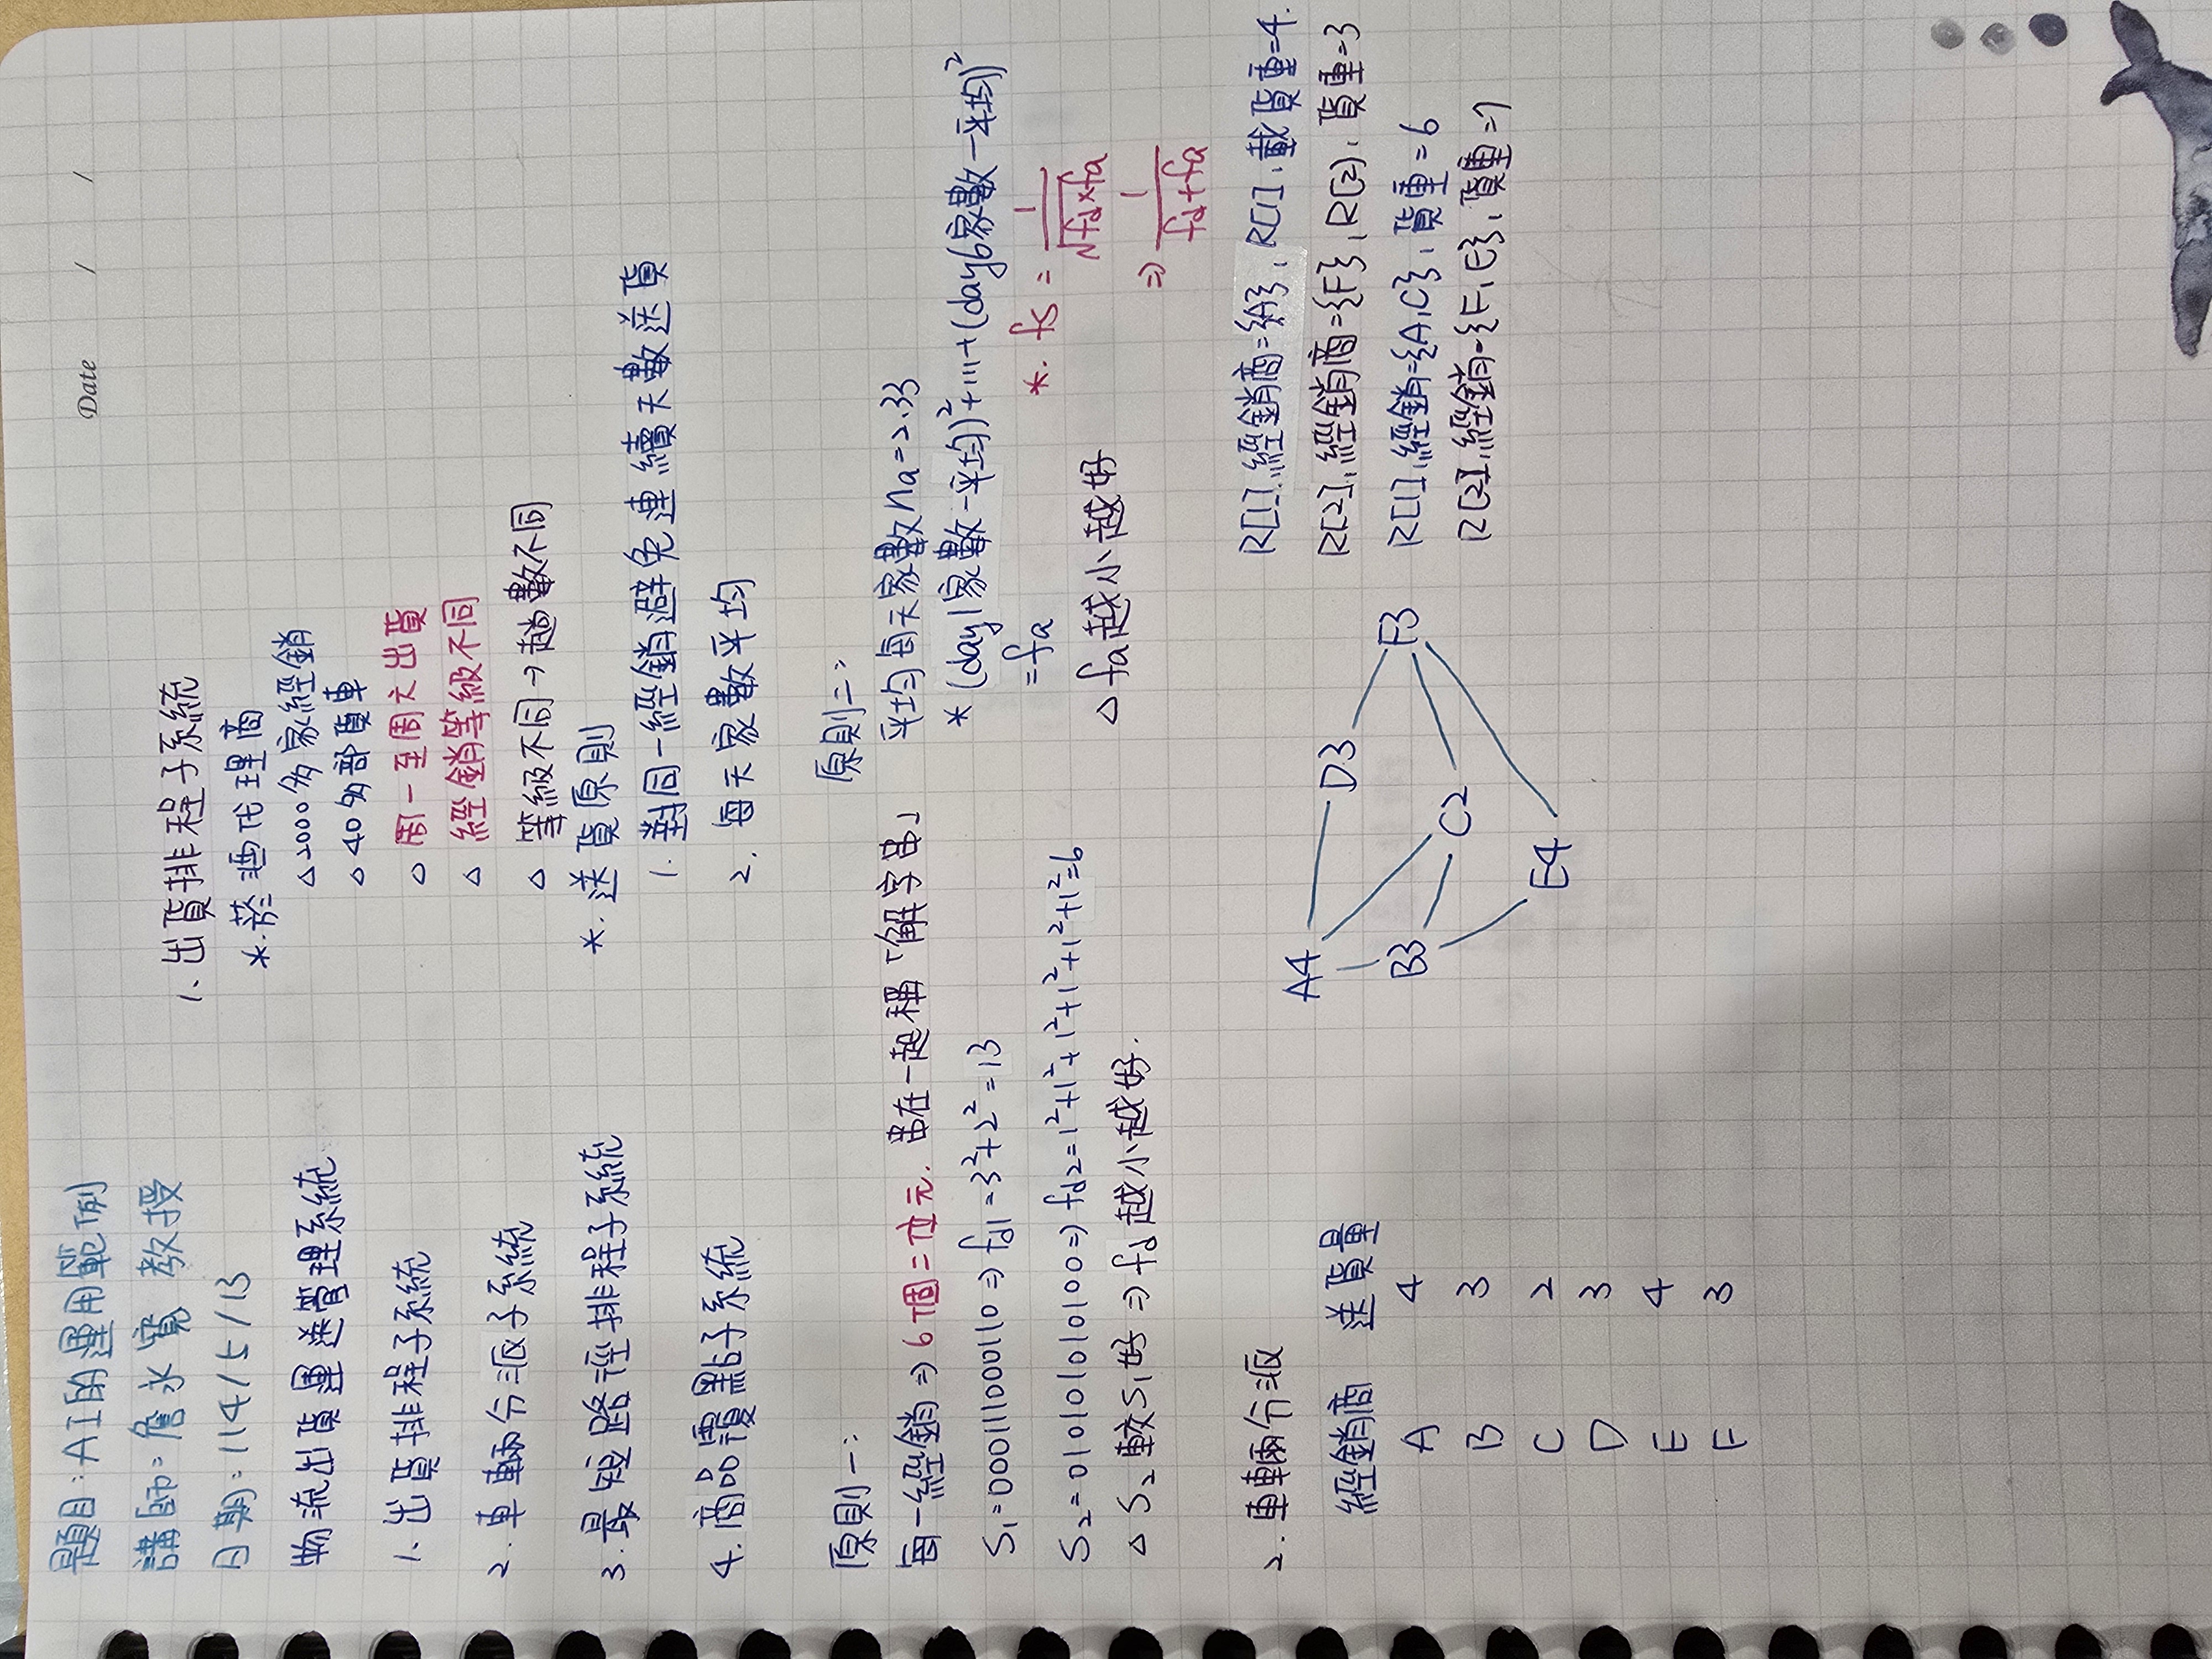 Date / /
題目:AI的運用範例
講師:詹永寬 教授
日期:114/5/13
物流出貨運送管理系統
1. 出貨排程子系統
2. 車輛分派子系統
3. 最短路徑排程子系統
4. 商品覆點子系統
1. 出貨排程子系統
*. 菸酒代理商
△ 2000多家經銷
△ 40多部貨車
△ 周一至周六出貨
△ 經銷等級不同
△ 等級不同→趟數不同
*. 送貨原則
1. 對同一經銷避免連續天數送貨
2. 每天家數平均
原則一:
每一經銷⇒6個二位元. 串在一起稱「解字串」
S₁=000111000110⇒fd1=3²+2²=13
S₂=010101010100⇒fd2=1²+1²+1²+1²+1²+1²=6
△ S₂較S₁好⇒fd越小越好.
原則二:
平均每天家數na=2.33
* (day1家數-平均)²+...+(day6家數-平均)²
=fa
△ fa越小越好
*. fs = 1/√fd×fa
⇒ 1/fd+fa
2. 車輛分派
經銷商 送貨量
A 4
B 3
C 2
D 3
E 4
F 3
A4
D3
B3
F3
C2
E4
R[1].經銷商={A}, R[1].載貨重=4.
R[2].經銷商={F}, R[2].貨重=3
R[1].經銷={A,C}, 貨重=6
R[2].經銷={F,E}, 貨重=7